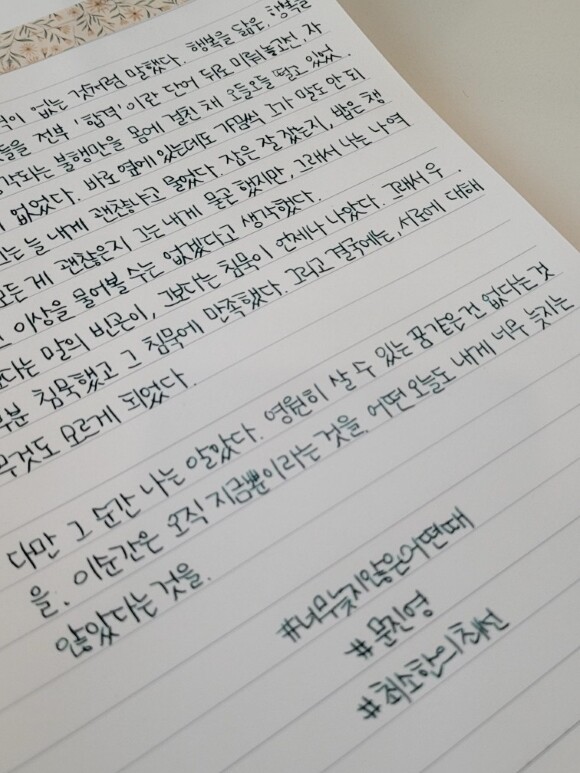 적이 없는 것처럼 말했다. 행복을 닮은, 행복을
들을 전부 '합격'이란 단어 뒤로 미뤄놓고선, 자
각되는 불행만을 몸에 걸친 채 오들오들 떨고 있었
이 없었다. 바로 옆에 있는데도 가끔씩 그가 말도 안 되
그는 늘 내게 괜찮냐고 물었다. 잠은 잘 잤는지, 밥은 챙
모든 게 괜찮은지 그는 내게 묻곤 했지만, 그래서 나는 나 역
그 이상을 물어볼 수는 없겠다고 생각했다.
보다는 말의 빈곤이, 그보다는 침묵이 언제나 나았다. 그래서 우
부분 침묵했고 그 침묵에 만족했다. 그리고 결국에는, 서로에 대해
무것도 모르게 되었다.
다만 그 순간 나는 알았다. 영원히 살 수 있는 꿈같은 건 없다는 것
을. 이순간은 오직 지금뿐이라는 것을. 어떤 오늘도 내게 너무 늦지는
않았다는 것을.
#너무늦지않은어떤때
#문진영
#최소한의선